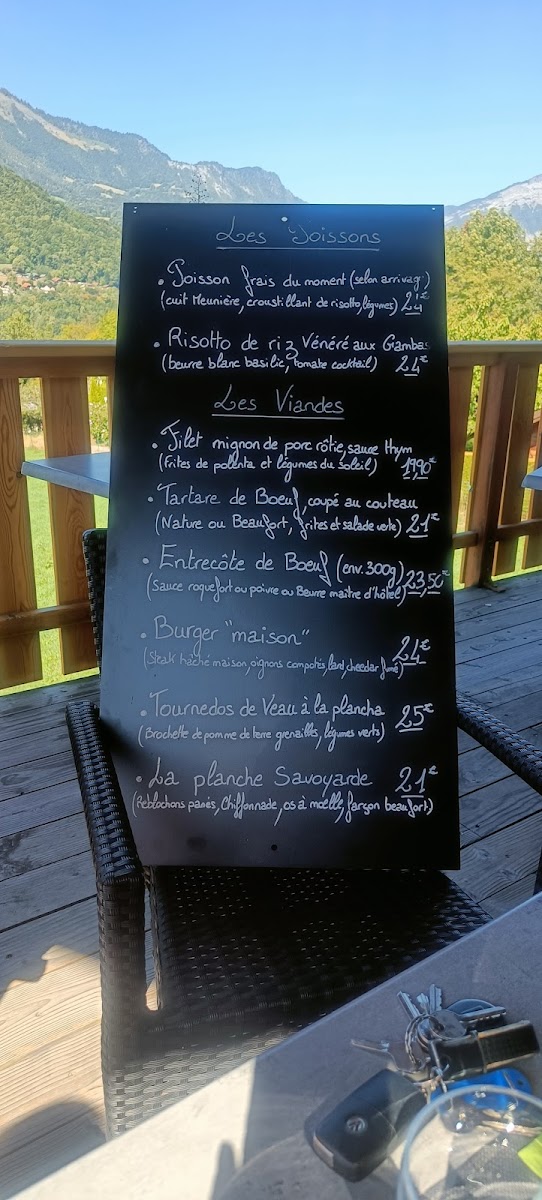 Les Poissons
• Poisson frais du moment (selon arrivage)
(cuit Meunière, croustillant de risotto, légumes) 24€
• Risotto de riz Vénéré aux Gambas
(beurre blanc basilic, tomate cocktail) 24€
Les Viandes
• Filet mignon de porc rôtie, sauce thym
(frites de polenta et légumes du soleil) 19,90€
• Tartare de Boeuf, coupé au couteau
(Nature ou Beaufort, frites et salade verte) 21€
• Entrecôte de Boeuf (env. 300g)
(Sauce roquefort ou poivre ou Beurre maître d'hôtel) 23,50€
• Burger "maison"
(Steak haché maison, oignons compotés, lard, cheedar fumé) 21€
• Tournedos de Veau à la plancha
(Brochette de pomme de terre grenailles, légumes verts) 25€
• La planche Savoyarde 21€
(Reblochons panés, Chiffonnade, os à moelle, façon beaufort)